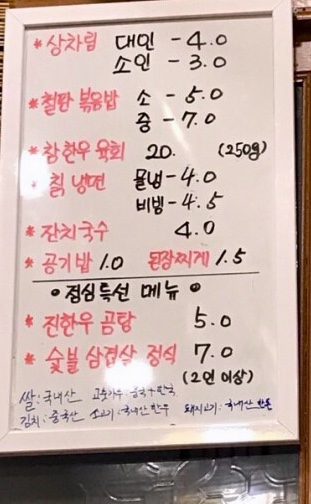 * 상차림 대인 - 4.0
소인 - 3.0
* 철판 볶음밥 소 - 5.0
중 - 7.0
* 참한우 육회 20. (250g)
* 칡 냉면 물냉 - 4.0
비빔 - 4.5
* 잔치국수 4.0
* 공기밥 1.0 된장찌게 1.5
• 점심특선 메뉴 •
* 진한우 곰탕 5.0
* 숯불 삼겹살 정식 7.0
(2인 이상)
쌀: 국내산 고추가루: 중국+한국
김치: 중국산 소고기: 국내산 한우 돼지고기: 국내산 한돈